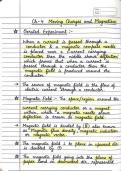 Ch-4 Moving Charges and Magnetism
Oersted Experiment :-
When a current is passed through a
conductor & a magnetic compass needle
is placed near a current carrying
conductor then the needle shows deflection
which proves that when a current is
passed through a conductor then the
magnetic field is produced around the
conductor.
The source of magnetic field is the flow of
electric current through a conductor.
Magnetic Field :- The space/region around the
current carrying conductor or a magnet
within which a magnetic needle shows
deflection is called magnetic field.
Magnetic field is denoted by (B) also known
as Magnetic flux density, magnetic induction
or magnetic vector.
The magnetic field is in plane is upward its
denoted by
The magnetic field going into the plane of
paper